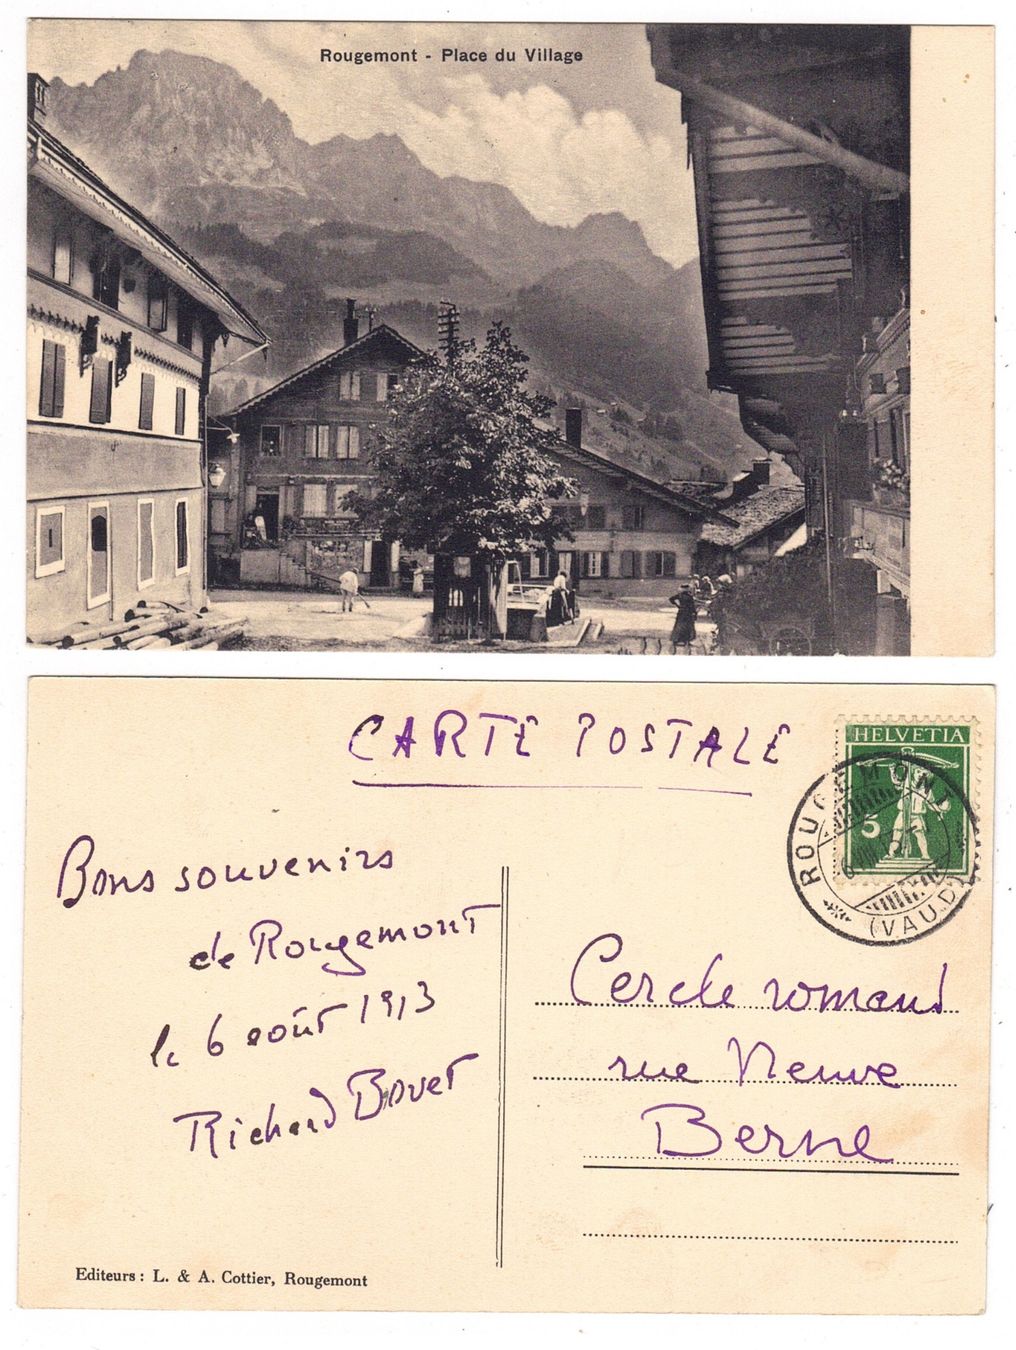 Rougemont - Place du Village
CARTE POSTALE
HELVETIA
5
ROUGEMONT
(VAUD)
Bons souvenirs
de Rougemont
le 6 août 1913
Richard Bovet
Cercle romand
rue Neuve
Berne
Editeurs : L. & A. Cottier, Rougemont